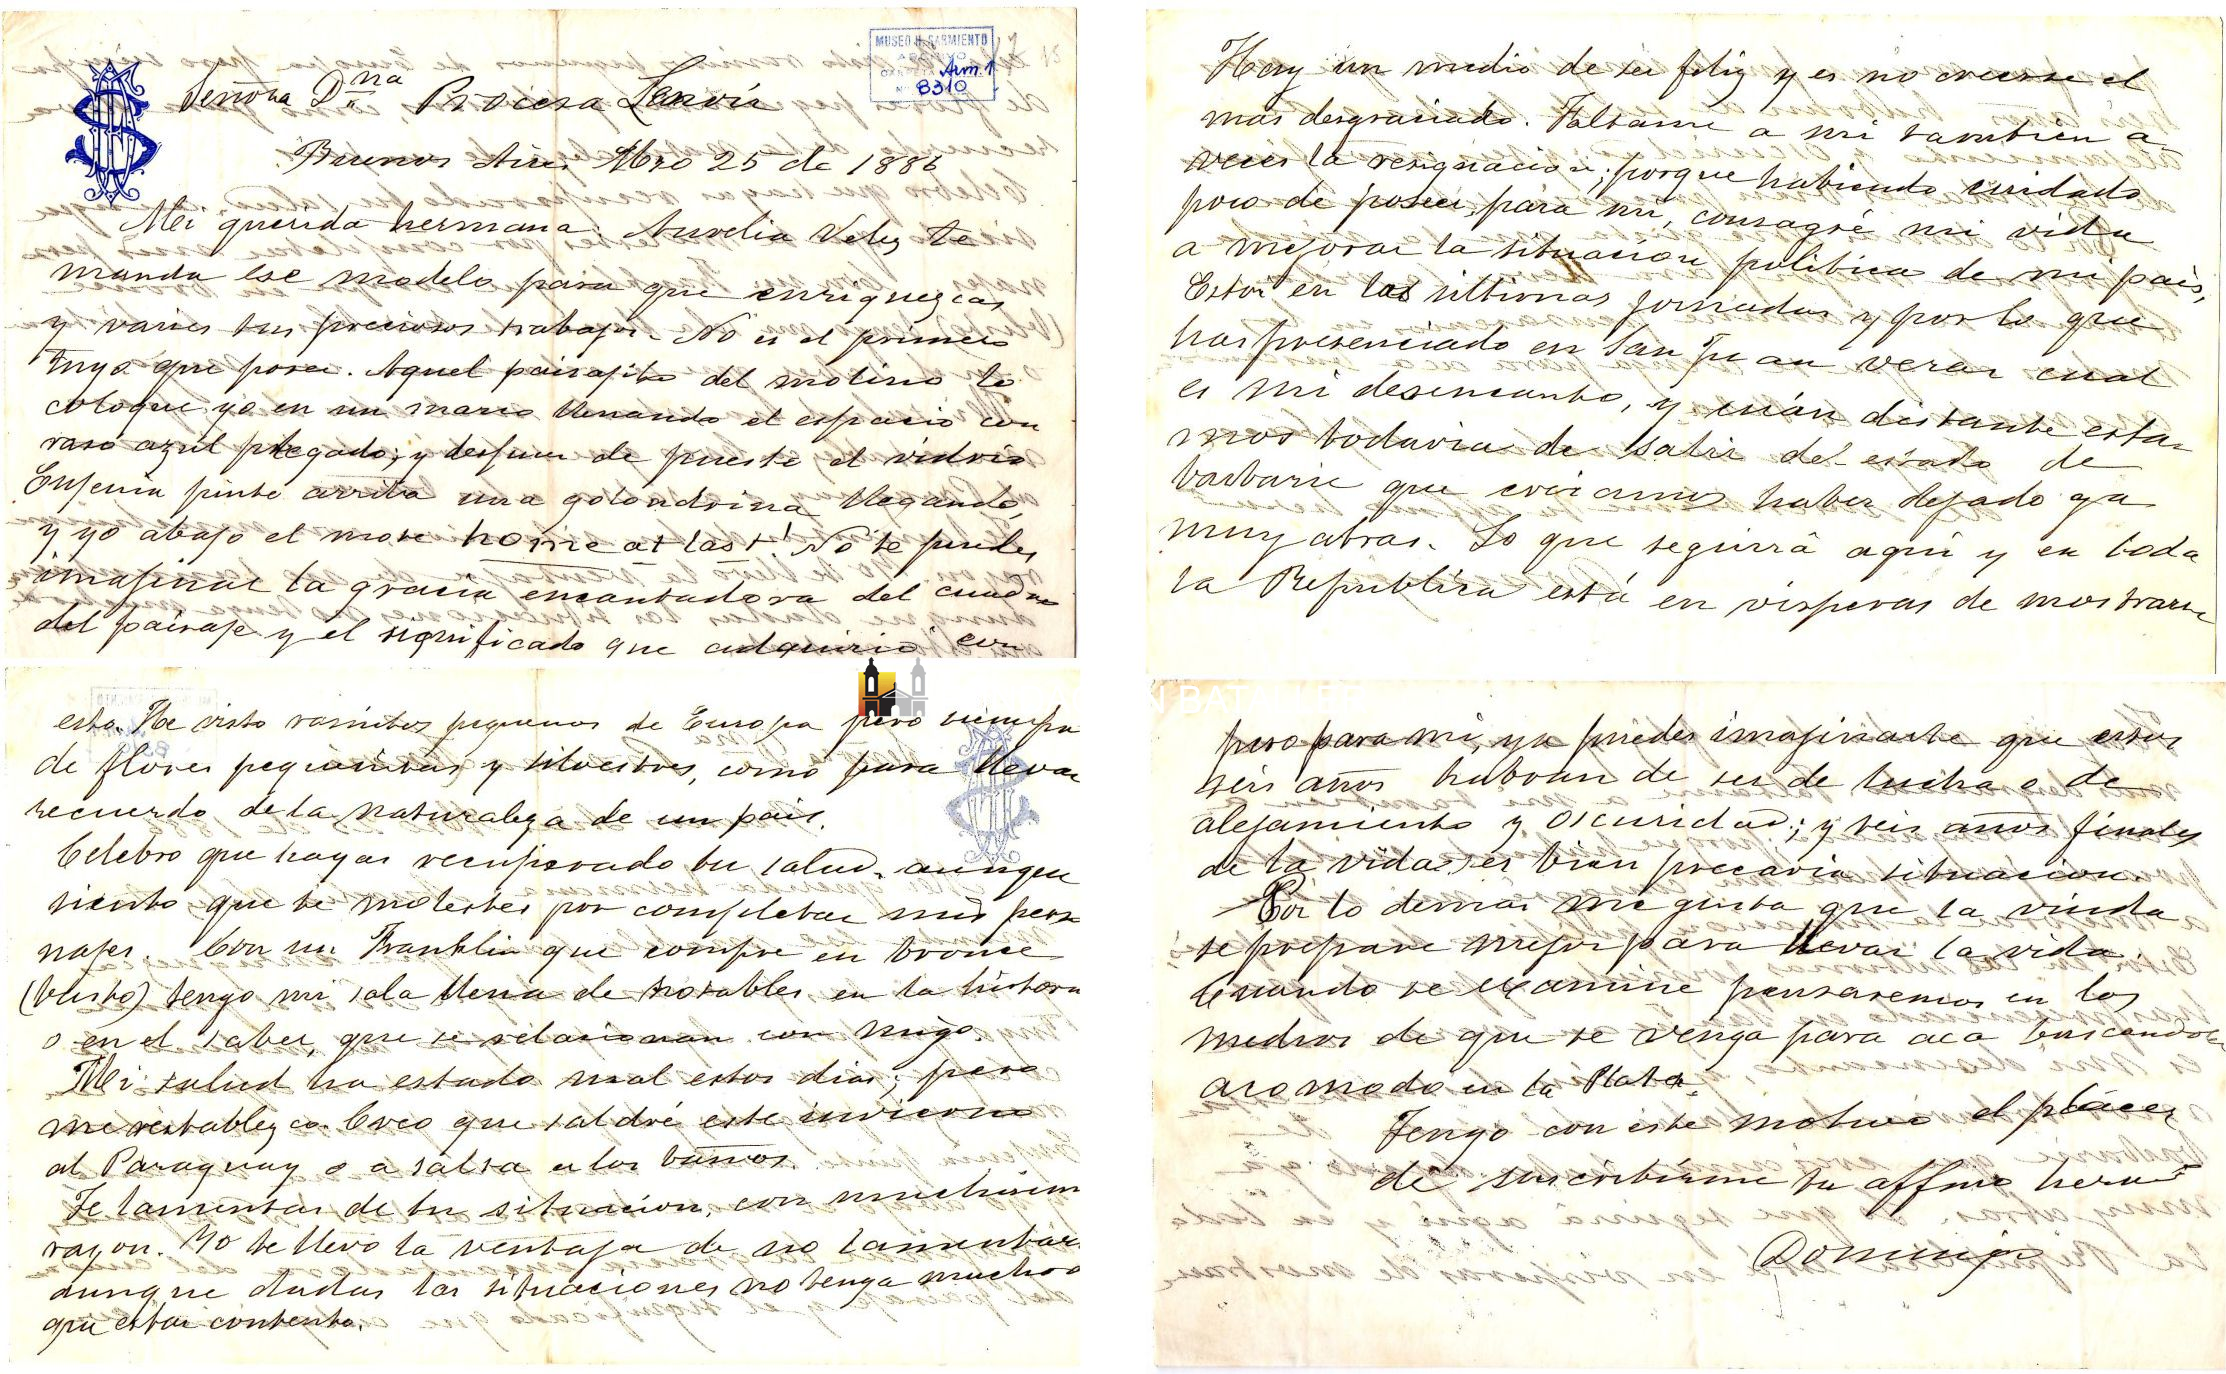 MUSEO H. SARMIENTO
Arm. 1
8310
Señora D.ña Procesa Lenoir
Buenos Aires Mzo 25 de 1886
Mi querida hermana. Aurelia Velez te
manda ese modelo para que enriquezcas
y varies tus preciosos trabajos. No es el primero
tuyo que posee. Aquel paisajito del molino lo
coloque yo en un marco llenando el espacio con
raso azul plegado; y despues de puesto el vidrio
Eujenia pinto arriba una golondrina llegando,
y yo abajo el mote home at last! No te puedes
imajinar la gracia encantadora del cuadro
del paisaje y el significado que adquirio con
esto. He visto ramitos pequenos de Europa pero siempre
de flores pequeñitas y silvestres, como para llevar
recuerdo de la naturaleza de un pais.
Celebro que hayas recuperado tu salud, aunque
siento que te molestes por completar mis perso
najes. Con un Franklin que compre en bronce
(busto) tengo mi sala llena de notables en la historia
o en el saber, que se relacionan con migo.
Mi salud ha estado mal estos dias; pero
me restablezco. Creo que saldré este invierno
al Paraguay o a Salta a los baños.
Te lamentas de tu situacion, con muchisima
razon. Yo te llevo la ventaja de no lamentar
aunque dadas las situaciones no tenga mucho
que estar contento.
Hay un medio de ser feliz y es no creerse el
mas desgraciado. Faltame a mi tambien a
veces la resignacion; porque habiendo cuidado
poco de poseer para mi, consagré mi vida
a mejorar la situacion politica de mi pais,
Estoi en las ultimas jornadas y por lo que
has presenciado en San Juan veras cual
es mi desencanto, y cuán distante esta-
mos todavia de salir del estado de
barbarie que creiamos haber dejado ya
muy atras. Lo que seguirrá aqui y en toda
la Republica está en visperas de mostrarse
pero para mi, ya puedes imajinarte que estos
seis años habran de ser de lucha o de
alejamiento y oscuridad; y seis años finales
de la vida es bien precaria situacion.
Por lo demas me gusta que la viuda
se prepare mejor para llevar la vida.
Cuando se examine pensaremos en los
medios de que se venga para aca buscandole
acomodo en la Plata.
Tengo con este motivo el placer
de suscribirme tu affmo hermo
Domingo